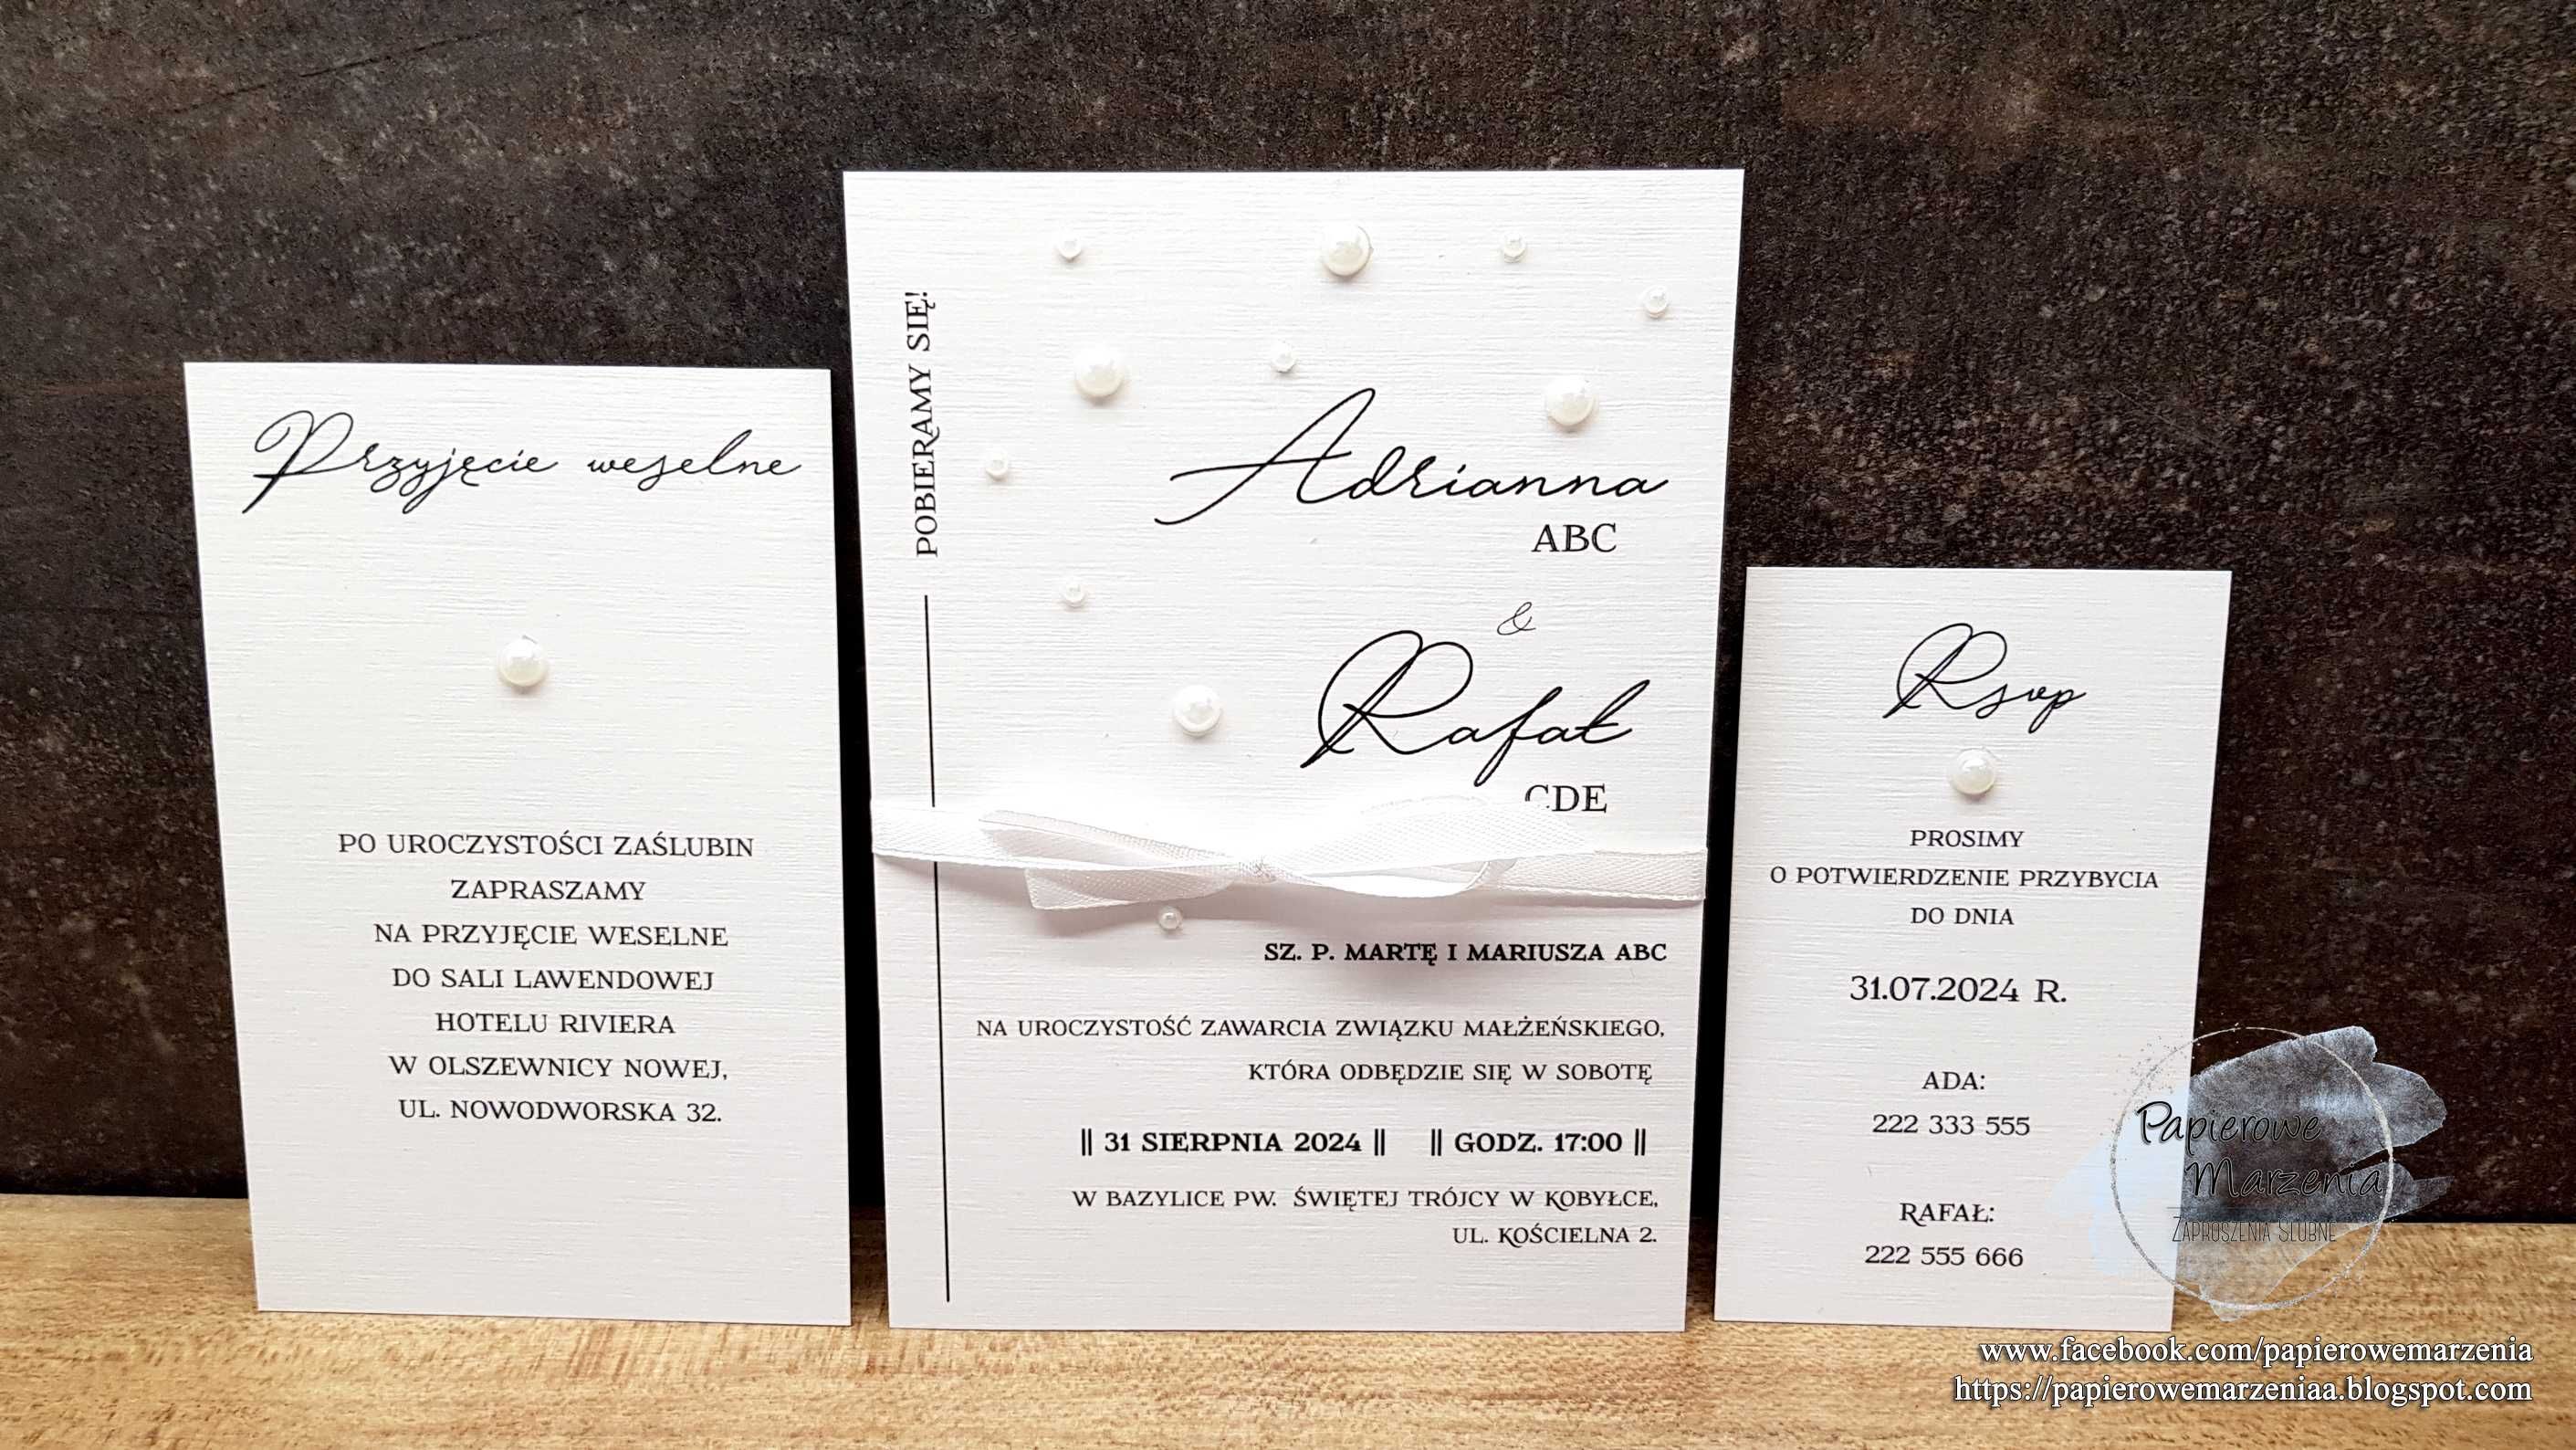 Przyjęcie weselne
PO UROCZYSTOŚCI ZAŚLUBIN
ZAPRASZAMY
NA PRZYJĘCIE WESELNE
DO SALI LAWENDOWEJ
HOTELU RIVIERA
W OLSZEWNICY NOWEJ,
UL. NOWODWORSKA 32.
POBIERAMY SIĘ!
Adrianna
ABC
&
Rafał
CDE
SZ. P. MARTĘ I MARIUSZA ABC
NA UROCZYSTOŚĆ ZAWARCIA ZWIĄZKU MAŁŻEŃSKIEGO,
KTÓRA ODBĘDZIE SIĘ W SOBOTĘ
|| 31 SIERPNIA 2024 || || GODZ. 17:00 ||
W BAZYLICE PW. ŚWIĘTEJ TRÓJCY W KOBYŁCE,
UL. KOŚCIELNA 2.
Rsvp
PROSIMY
O POTWIERDZENIE PRZYBYCIA
DO DNIA
31.07.2024 R.
ADA:
222 333 555
RAFAŁ:
222 555 666
Papierowe
Marzenia
ZAPROSZENIA ŚLUBNE
www.facebook.com/papierowemarzenia
https://papierowemarzeniaa.blogspot.com